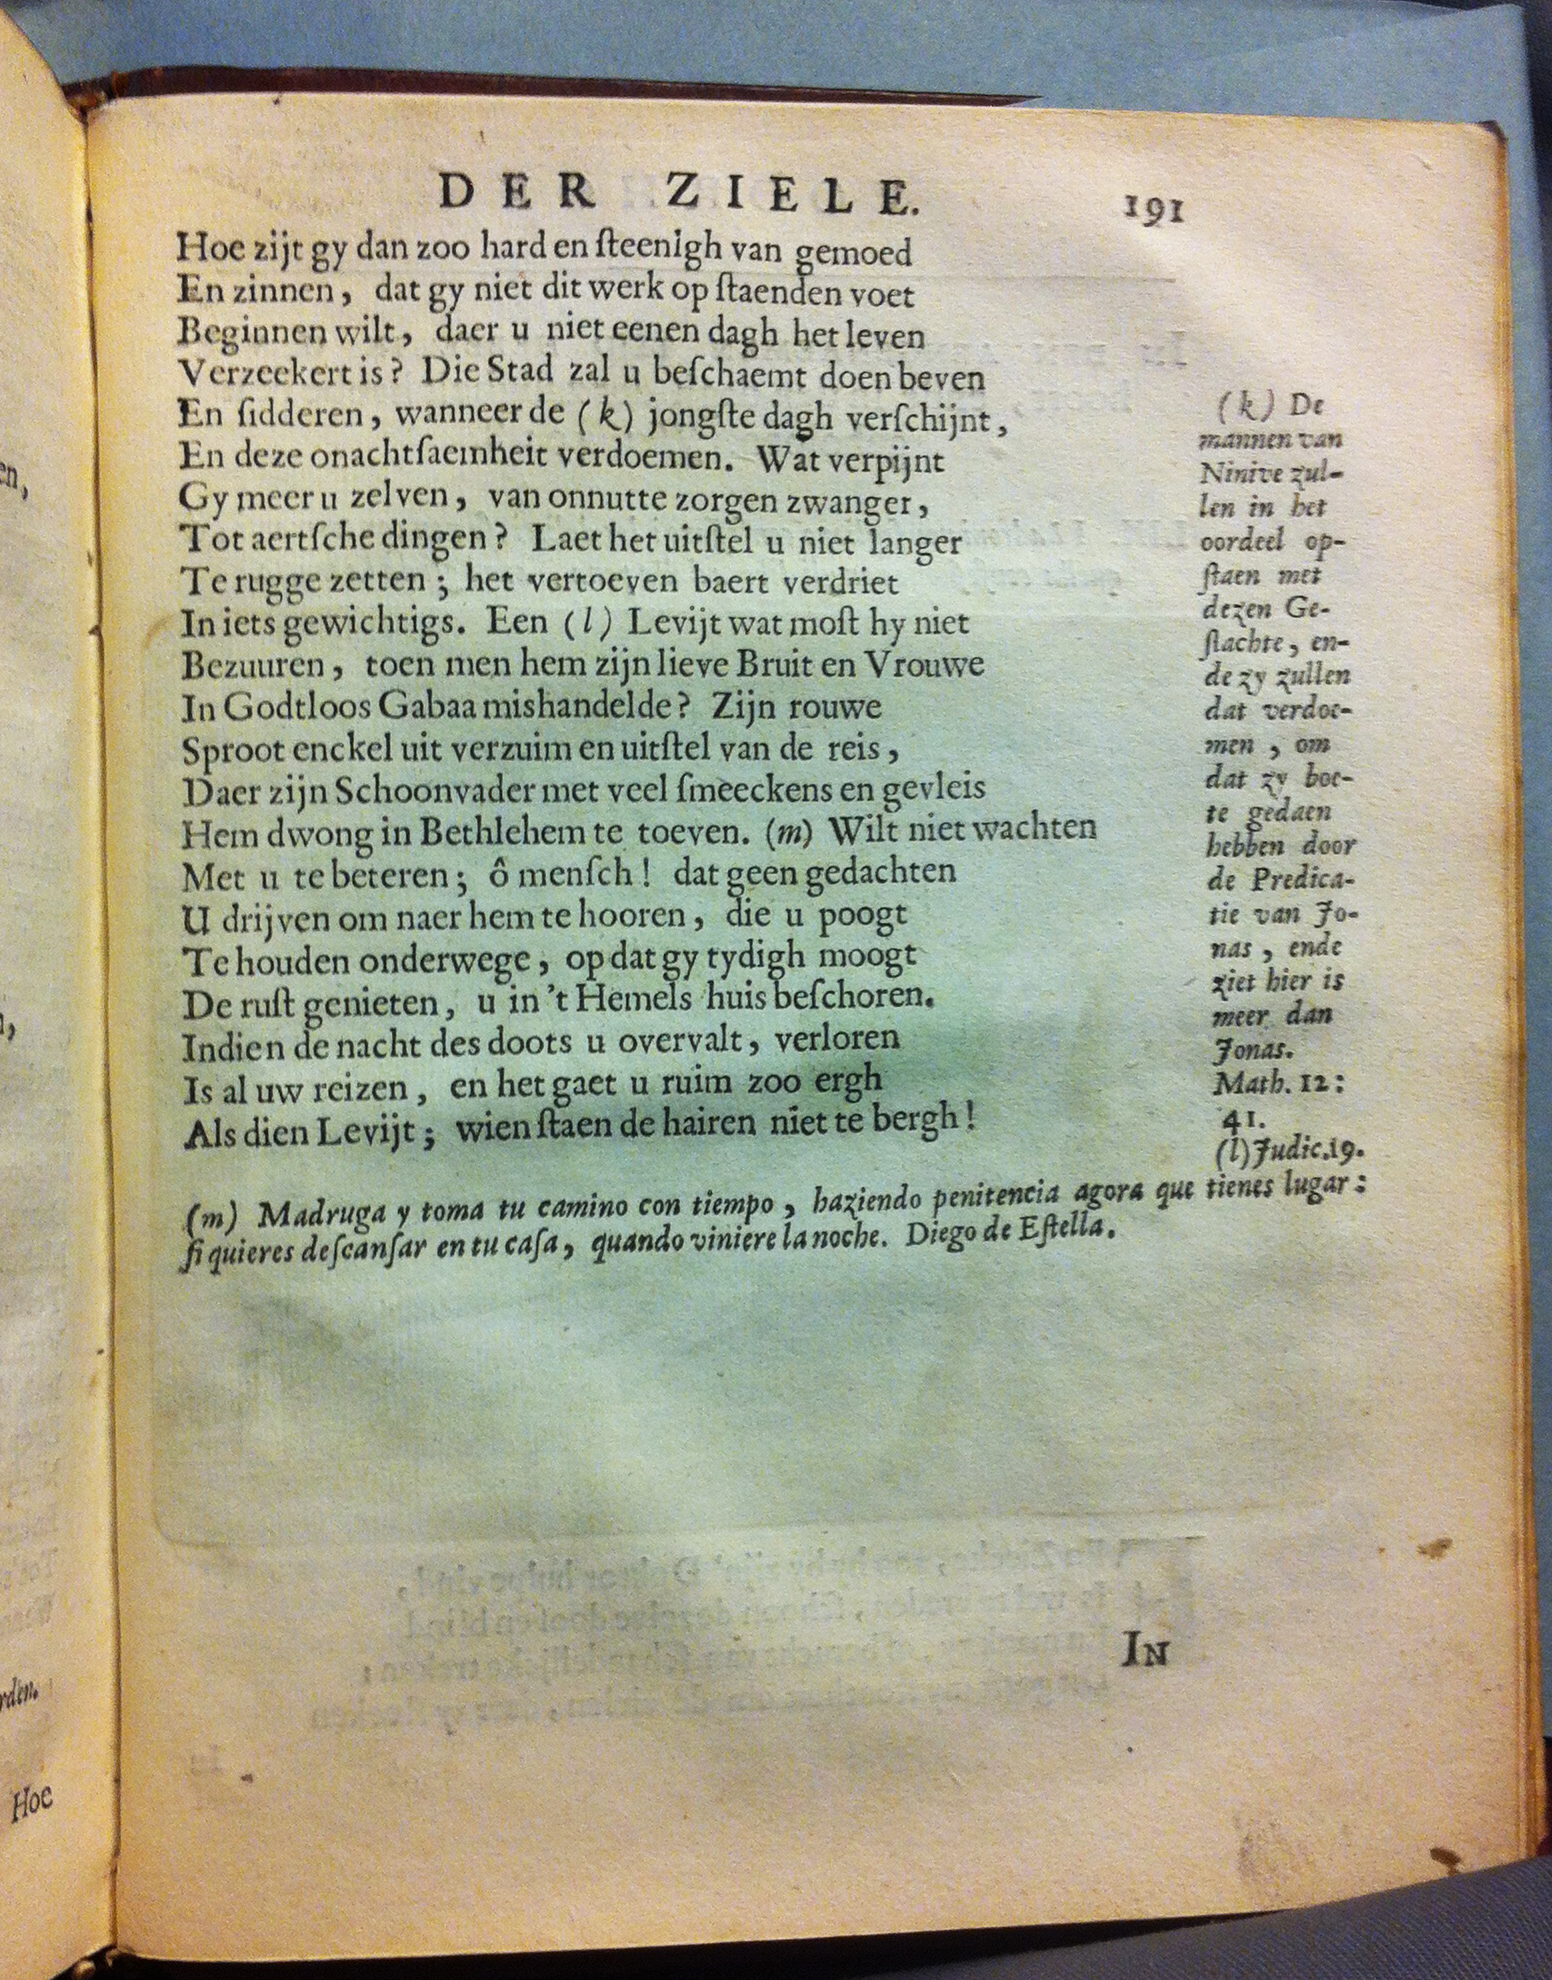 DER ZIELE. 191
Hoe zijt gy dan zoo hard en ſteenigh van gemoed
En zinnen, dat gy niet dit werk op ſtaenden voet
Beginnen wilt, daer u niet eenen dagh het leven
Verzeekert is? Die Stad zal u beſchaemt doen beven
En ſidderen, wanneer de (k) jongſte dagh verſchijnt,
En deze onachtſaemheit verdoemen. Wat verpijnt
Gy meer u zelven, van onnutte zorgen zwanger,
Tot aertſche dingen? Laet het uitſtel u niet langer
Te rugge zetten; het vertoeven baert verdriet
In iets gewichtigs. Een (l) Levijt wat moſt hy niet
Bezuuren, toen men hem zijn lieve Bruit en Vrouwe
In Godtloos Gabaa mishandelde? Zijn rouwe
Sproot enckel uit verzuim en uitſtel van de reis,
Daer zijn Schoonvader met veel ſmeeckens en gevleis
Hem dwong in Bethlehem te toeven. (m) Wilt niet wachten
Met u te beteren; ô menſch! dat geen gedachten
U drijven om naer hem te hooren, die u poogt
Te houden onderwege, op dat gy tydigh moogt
De ruſt genieten, u in 't Hemels huis beſchoren.
Indien de nacht des doots u overvalt, verloren
Is al uw reizen, en het gaet u ruim zoo ergh
Als dien Levijt; wien ſtaen de hairen niet te bergh!
(k) De
mannen van
Ninive zul-
len in het
oordeel op-
ſtaen met
dezen Ge-
ſlachte, en-
de zy zullen
dat verdoe-
men, om
dat zy boe-
te gedaen
hebben door
de Predica-
tie van Jo-
nas, ende
ziet hier is
meer dan
Jonas.
Math. 12:
41.
(l) Judic. 19.
(m) Madruga y toma tu camino con tiempo, haziendo penitencia agora que tienes lugar:
ſi quieres deſcanſar en tu caſa, quando viniere la noche. Diego de Eſtella.
IN
en,
rden.
Hoe